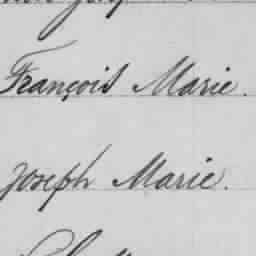 François Marie.
Joseph Marie.